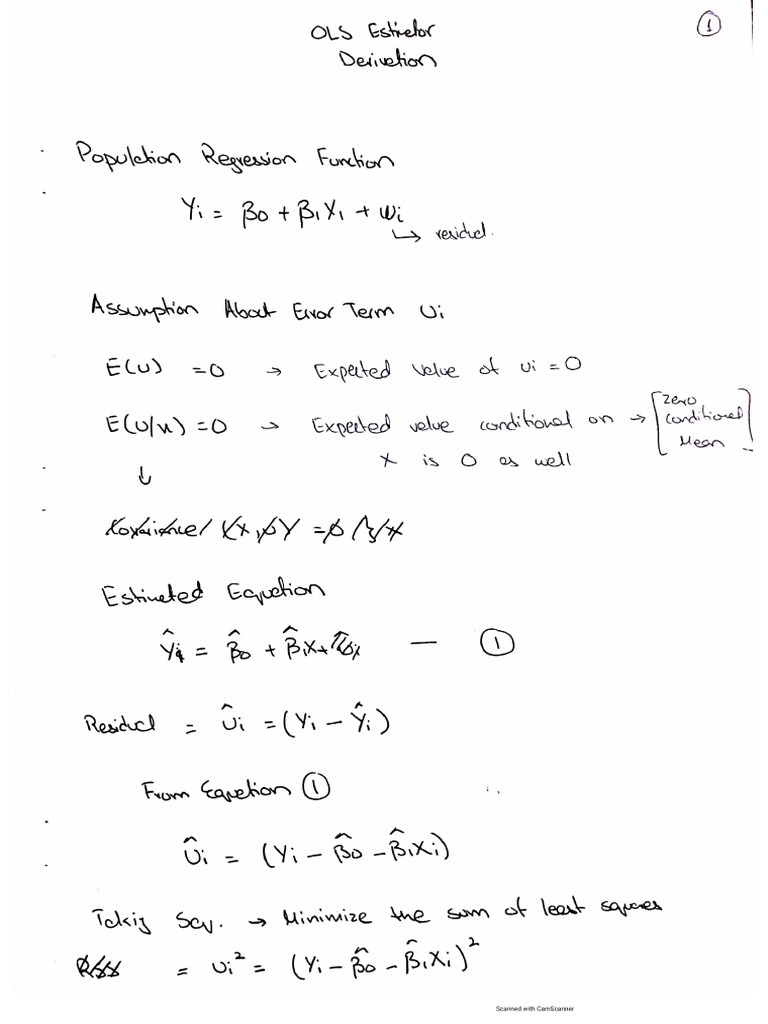 OLS Estimator
Derivation
①
Population Regression Function
Yi = β0 + β1X1 + ui
↳ residual.
Assumption About Error Term Ui
E(U) = 0 → Expected value of ui = 0
E(U/x) = 0 → Expected value conditional on → [Zero conditional Mean]
x is 0 as well
↓
Estimated Equation
Ŷi = β̂0 + β̂1x — ①
Residual = Ûi = (Yi − Ŷi)
From Equation ①
Ûi = (Yi − β̂0 − β̂1Xi)
Takig Sqr. → Minimize the sum of least squares
= Ui² = (Yi − β̂0 − β̂1Xi)²
Scanned with CamScanner